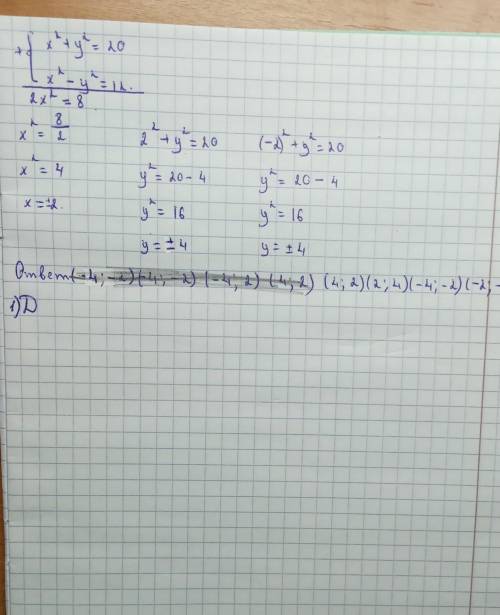 +{ x² + y² = 20
x² - y² = 12.
2x² = 8
x² = 8/2
x² = 4
x = ±2.
2² + y² = 20
y² = 20 - 4
y² = 16
y = ± 4
(-2)² + y² = 20
y² = 20 - 4
y² = 16
y = ± 4
Ответ (-4; -2) (4; -2) (-4; 2) (4; 2) (4; 2) (2; 4) (-4; -2) (-2; -
1) D